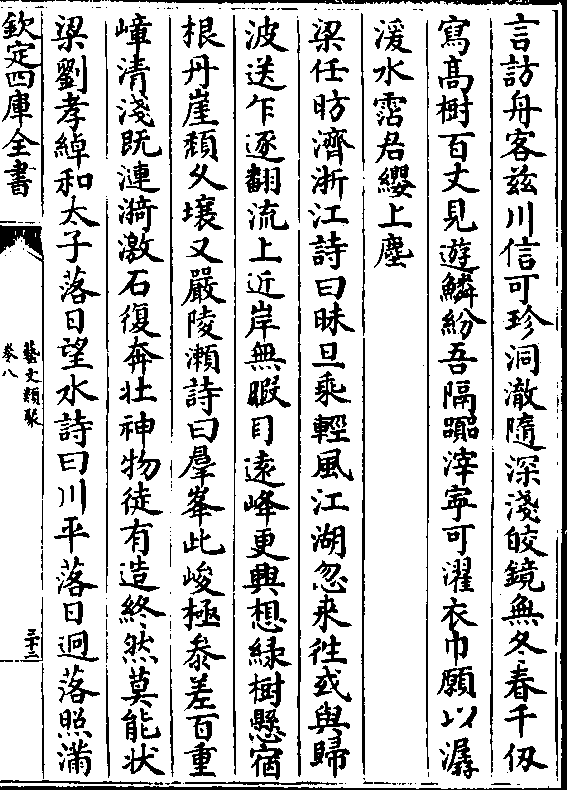 言訪舟客兹川信可珍洞澈隨深淺皎鏡無冬春千仭
寫髙樹百丈見遊鱗紛吾隔囂滓寜可濯衣巾願以潺
湲水霑君纓上塵
梁任昉濟浙江詩曰昧旦乘輕風江湖忽来徃或與歸
波送乍逐翻流上近岸無暇目逺峰更興想緑樹懸宿
根丹崖頽久壤又嚴陵瀨詩曰羣峯此峻極叅差百重
嶂清淺旣漣漪激石復奔壮神物徒有造終然莫能状
梁劉孝綽和太子落日望水詩曰川平落日迥落照滿
欽定四庫全書
藝文類聚
卷八
三十三